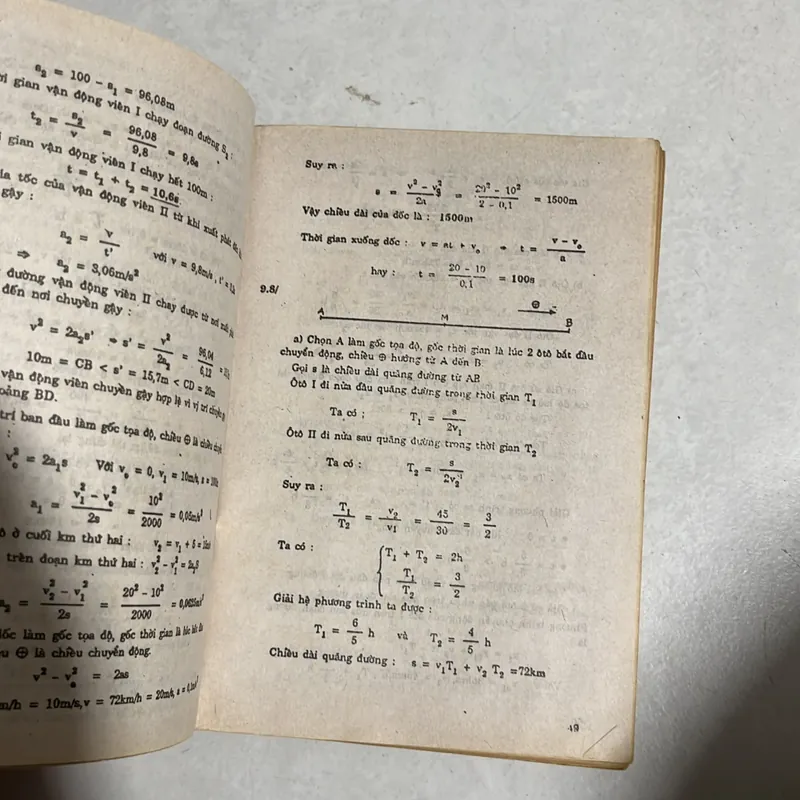 a₂ = 100 - a₁ = 96,08m
gian vận động viên I chạy đoạn đường S₂ :
t₂ = s₂/v = 96,08/9,8 = 9,8s
gian vận động viên I chạy hết 100m :
t = t₁ + t₂ = 10,6s
tốc của vận động viên II từ khi xuất phát
gậy :
a₂ = v/t' với v = 9,8m/s, t' =
⇒ a₂ = 3,06m/s²
đường vận động viên II chạy được từ nơi
đến nơi chuyền gậy :
v² = 2a₂s' ⇒ s' = v²/2a₂ = 96,04/6,12 =
10m = CB < s' = 15,7m < CD = 20m
vận động viên chuyền gậy hợp lệ vì vị trí
BD.
trí ban đầu làm gốc tọa độ, chiều ⊕ là chiều
:
v₀² = 2a₁s Với v₀ = 0, v₁ = 10m/s, s =
a₁ = v₁² - v₀²/2s = 10²/2000 = 0,05m/s²
ở cuối km thứ hai : v₂ = v₁ + 5 =
trên đoạn km thứ hai : v₂² - v₁² = 2a₂S
a₂ = v₂² - v₁²/2s = 20² - 10²/2000 =
dốc làm gốc tọa độ, gốc thời gian là lúc bắt đầu
⊕ là chiều chuyển động.
v² - v₀² = 2as
m/h = 10m/s, v = 72km/h = 20m/s, a = 0,1m/s²
Suy ra :
s = v² - v₀²/2a = 20² - 10²/2 - 0,1 = 1500m
Vậy chiều dài của dốc là : 1500m
Thời gian xuống dốc : v = at + v₀ ⇒ t = v - v₀/a
hay : t = 20 - 10/0,1 = 100s
9.8/
A M ⊕ B
a) Chọn A làm gốc tọa độ, gốc thời gian là lúc 2 ôtô bắt đầu
chuyển động, chiều ⊕ hướng từ A đến B
Gọi s là chiều dài quãng đường từ AB
Ôtô I đi nửa đầu quãng đường trong thời gian T₁
Ta có : T₁ = s/2v₁
Ôtô II đi nửa sau quãng đường trong thời gian T₂
Ta có : T₂ = s/2v₂
Suy ra :
T₁/T₂ = v₂/v1 = 45/30 = 3/2
Ta có : { T₁ + T₂ = 2h
T₁/T₂ = 3/2
Giải hệ phương trình ta được :
T₁ = 6/5 h và T₂ = 4/5 h
Chiều dài quãng đường : s = v₁T₁ + v₂ T₂ =72km
49